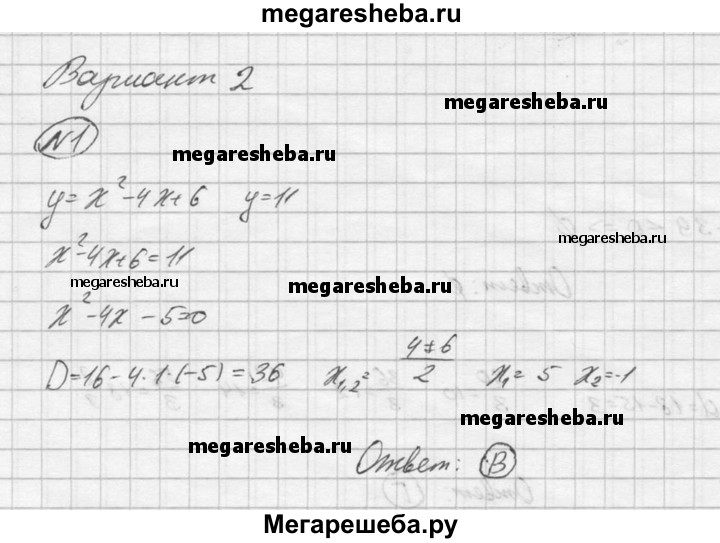 megaresheba.ru
Вариант 2
megaresheba.ru
№1
megaresheba.ru
y=x²-4x+6 y=11
megaresheba.ru
x²-4x+6=11
megaresheba.ru
megaresheba.ru
x²-4x-5=0
D=16-4·1·(-5)=36 x₁,₂=(4±6)/2 x₁=5 x₂=-1
megaresheba.ru
megaresheba.ru
Ответ: В
Мегарешеба.ру